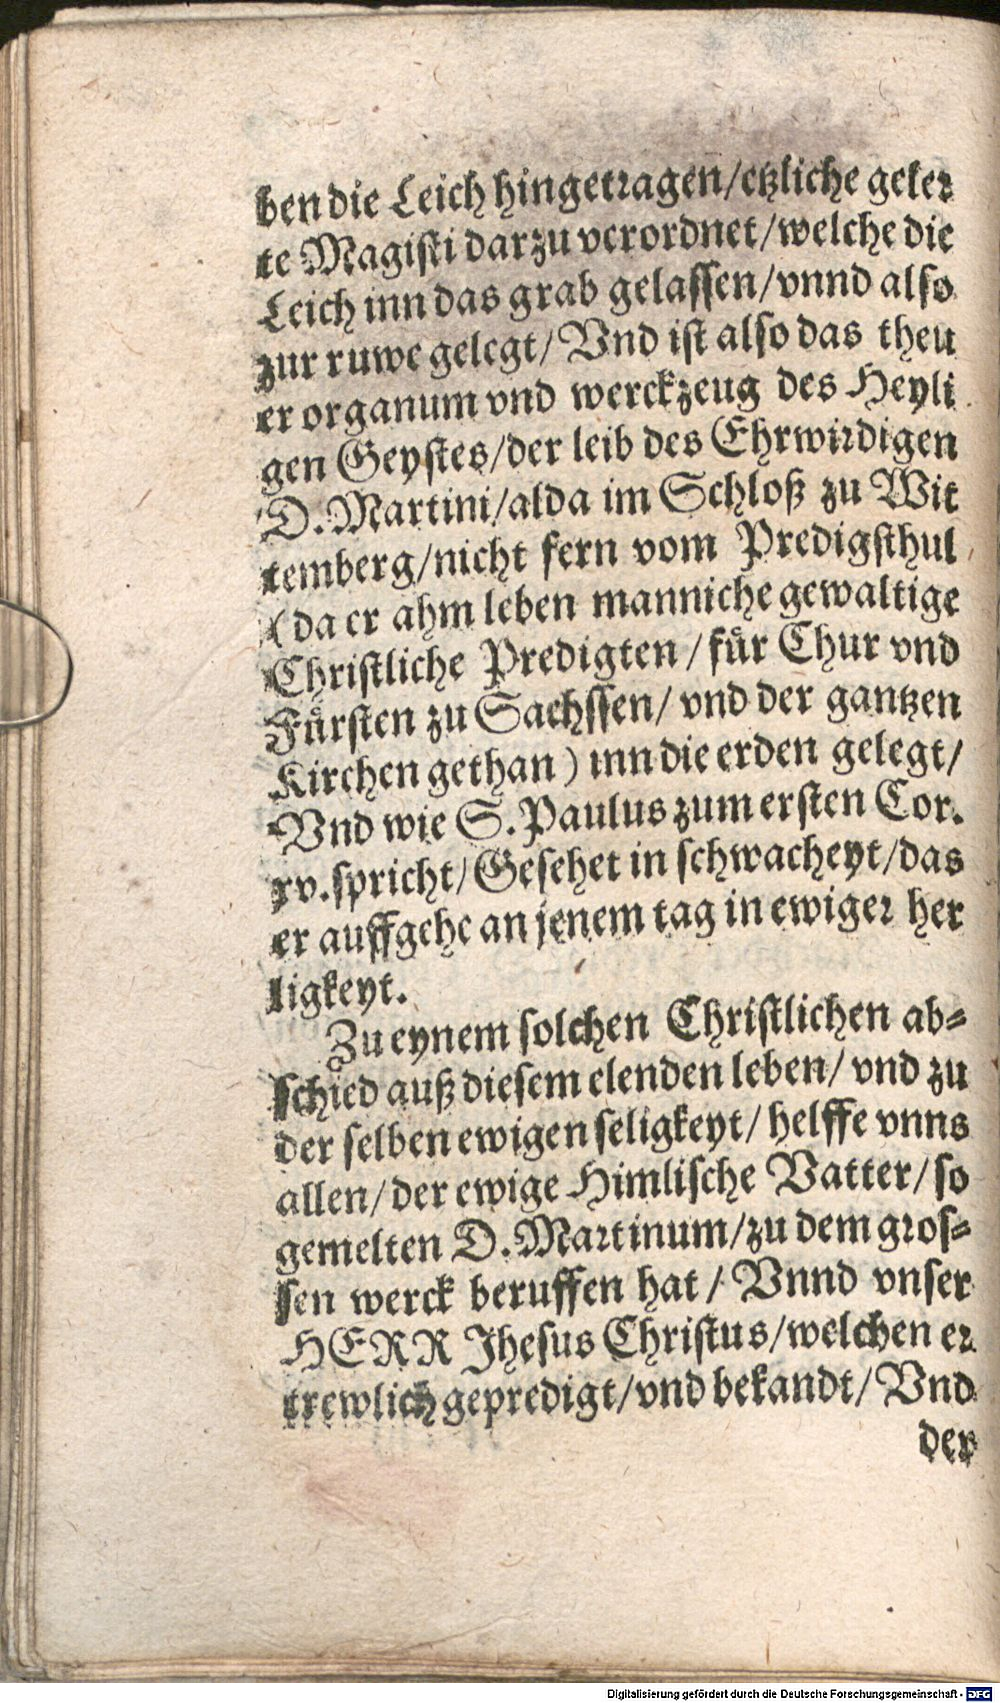 ben die Leich hingetragen/etzliche geker
te Magisti darzu verordnet/welche die
Leich inn das grab gelassen/vnnd also
zur ruwe gelegt/ Vnd ist also das theu
er organum vnd werckzeug des Heyli
gen Geystes/der leib des Ehrwirdigen
D. Martini/alda im Schloß zu Wit
temberg/nicht fern vom Predigsthul
(da er ahm leben manniche gewaltige
Christliche Predigten/für Chur vnd
Fürsten zu Sachssen/ vnd der gantzen
Kirchen gethan) inn die erden gelegt/
Vnd wie S. Paulus zum ersten Cor.
xv. spricht/Gesehet in schwacheyt/das
er auffgehe an jenem tag in ewiger her
ligkeyt.
Zu eynem solchen Christlichen ab-
schied auß diesem elenden leben/ vnd zu
der selben ewigen seligkeyt/ helffe vnns
allen/der ewige Himlische Vatter/so
gemelten D. Martinum/zu dem gros-
sen werck beruffen hat/ Vnnd vnser
HERR Jhesus Christus/welchen er
trewlich gepredigt/vnd bekandt/ Vnd
der
Digitalisierung gefördert durch die Deutsche Forschungsgemeinschaft - DFG